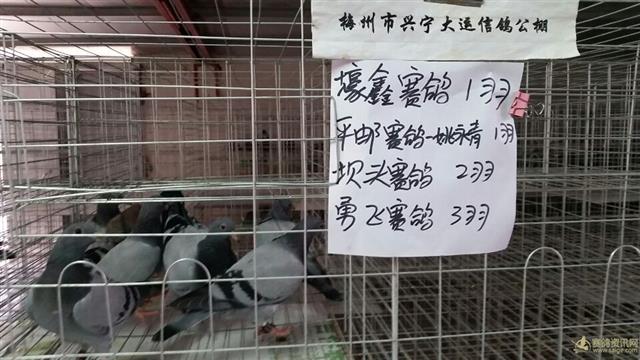 梅州市兴宁大运信鸽公棚
壕鑫赛鸽 1羽
平邮赛鸽-姚永青 1羽
坝头赛鸽 2羽
勇飞赛鸽 3羽
赛鸽资讯网
www.saige.com